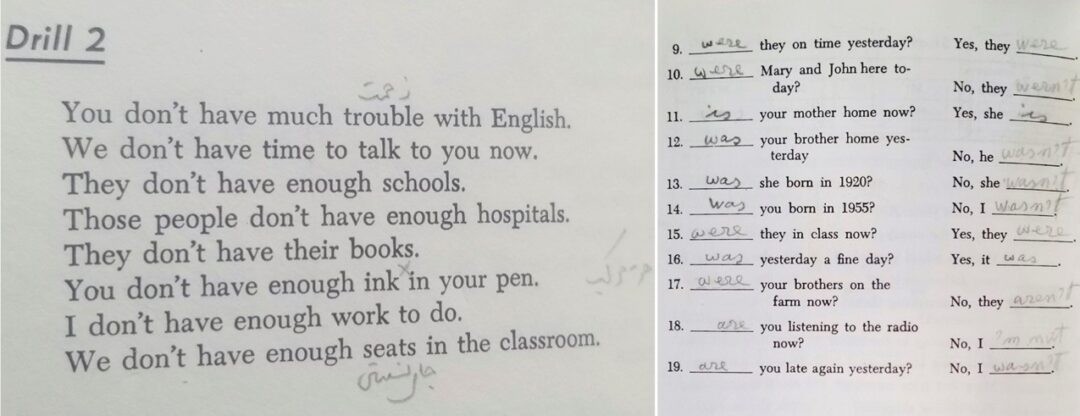 Drill 2
زحمت
You don't have much trouble with English.
We don't have time to talk to you now.
They don't have enough schools.
Those people don't have enough hospitals.
They don't have their books.
You don't have enough ink in your pen.
I don't have enough work to do.
We don't have enough seats in the classroom.
9. were they on time yesterday? Yes, they were.
10. were Mary and John here to-
day? No, they wern't.
11. is your mother home now? Yes, she is.
12. was your brother home yes-
terday No, he wasn't.
13. was she born in 1920? No, she wasn't.
14. Was you born in 1955? No, I wasn't.
15. were they in class now? Yes, they were.
16. was yesterday a fine day? Yes, it was.
17. were your brothers on the
farm now? No, they aren't.
18. are you listening to the radio
now? No, I 'm not.
19. are you late again yesterday? No, I wasn't.